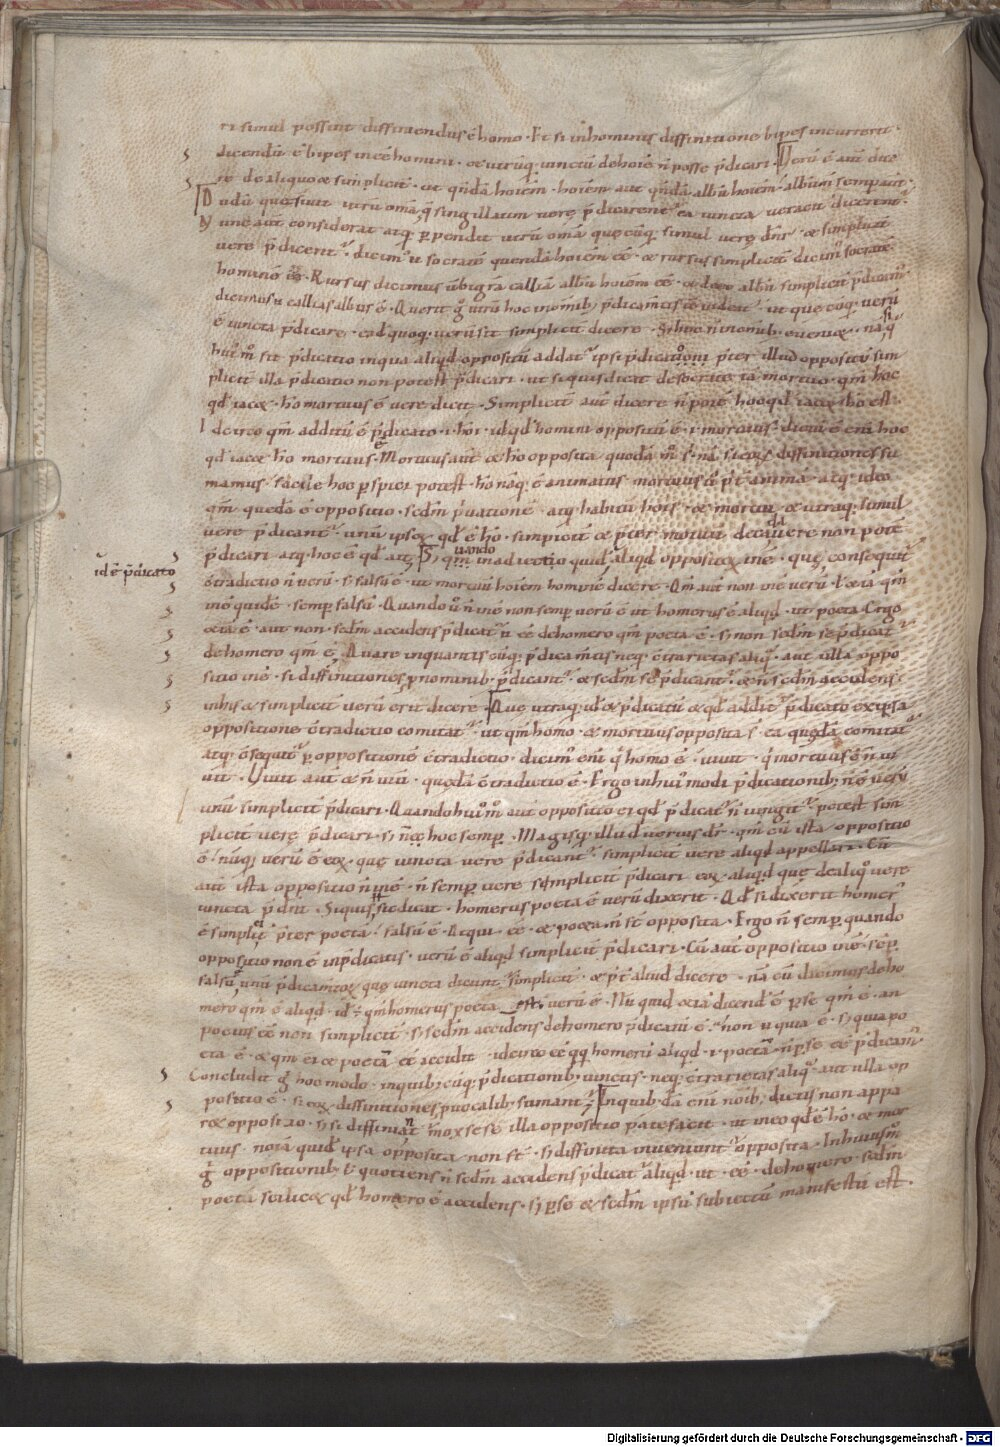 ri simul possint diffiniendus ē homo · Et si in hominis diffinitione bipes incurrerit ·
dicendū ē bipes inē homini · & utrūq; iunctū de hoīe n̄ posse p̄dicari · Verū ē autē dice
re de aliquo & simplicit̄ · ut quēdā hoīem · hoīem aut quēdā albū hoīem · albū
Dudū quesiuit utrū omīa q̄ singillatim uerę p̄dicarent̄ ea iuncta
Nunc aut considerat atq; ꝑpendit utrū omīa quę cūq; simul uerę & simplicit̄
uere p̄dicent̄ · dicim' socratē quendā hoīem ēē · & rursus simplicem dicim' socratē
hominē · Rursus dicimus calliā albū hoīem ēē · albū simplicit̄ p̄dicam'
dicimus callias albus ē · Querit g̊ utrū hoc in omīb; p̄dicam̄tis ut que cūq; uerū
ē iuncta p̄dicare · ead quoq; uerū sit simplicit̄ dicere · S; hoc n̄ in omīb; eueni& · nā si q̄
hui' mo sit p̄dicatio in qua aliqd oppositū addat̄ ipsi p̄dicationi p̄ter illud oppositū sim
plicit̄ illa p̄dicatio non potest p̄dicari · ut si quis dicat de socrate iā mortuo · qm̄ hoc
qd iac& · hō mortuus ē uere dicit · Simplicit̄ aut dicere n̄ potē hoc qd iac& hō est ·
Idcirco qm̄ additū ē p̄dicato · i · hōi · id qd homini oppositū ē · i · mortuus · dictū ē eni hoc
qd iac& · hō mortuus · Mortuus aut & hō opposita quodā mō s̄ · nā si eis diffinitiones su
mamus · facile hoc ꝑspici potest · hō naq; ē animatus · mortuus ū p̄t animā · atq; ideo
qm̄ quedā ē oppositio · scdm̄ p̄uationē · atq; habitū hōis & mortui & utraq; simul
uere p̄dicant̄ · unū ipso& qd ē hō · simplicit̄ & p̄ter mortui de cadauere non potē
p̄dicari atq; hoc ē qd ait · S; qm̄ uando in adiectio quid aliqd opposito& inē · quę consequit̄
id ē p̄dicato
c̄tradictio n̄ uerū · s; falsū ē · ut mortuū hoīem hominē dicere · Qm̄ aut non inē uerū ł & iā qm̄
inē quidē · semp falsū · Quando ū n̄ inē non semp uerū ē ut homerus ē aliqd · ut poeta Ergo
& iā ē · aut non · scdm̄ accidens p̄dicat̄ ēē de homero qm̄ poeta ē · s; non scdm̄ se p̄dicat̄
de homero qm̄ ē · Quare in quantis cūq; p̄dicam̄tis neq; c̄trarietas aliq' aut ulla oppo
sitio inē · si diffinitiones p nominib; p̄dicant̄ · & scdm̄ se p̄dicant̄ · & n̄ scdm̄ accidens ·
in his & simplicit̄ uerū erit dicere · Quę utraq; id & p̄dicatū & qd addit̄ p̄dicato ex ipsa
oppositione c̄tradictio comitat̄ · ut qm̄ homo & mortuus opposita s̄ ea quędā comitat̄
atq; c̄sequit̄ ꝑ oppositionē c̄tradictio · dicim' eni q̄ homo ē · uiuit · q̄ mortuus ē n̄ ui
uit · Viuit aut & n̄ uiu · quędā c̄tradictio ē · Ergo in hui' modi p̄dicationib; n̄ ē uerū
unū simplicit̄ p̄dicari · Quando hui' mo aut oppositio ei qd p̄dicat̄ n̄ iungit̄ potest sim
plicit̄ uerę p̄dicari · s; nec hoc semp · Magisq; illud uerius dr̄ · qm̄ cū ista oppositio
ē · nūq; uerū ē eo& quę iuncta uere p̄dicant̄ · simplicit̄ uere aliqd appellari · Cū
aut ista oppositio n̄ inē · n̄ semp uere simplicit̄ p̄dicari eo& aliqd quę de aliq' uere
iuncta p̄dn̄t · Siquis sic dicat · homerus poeta ē uerū dixerit · Qd si dixerit homer'
ē simplicit̄ p̄ter poeta · falsū ē · Atqui ēē · & poeta n̄ st̄ opposita · Ergo n̄ semp quando
oppositio non ē in p̄dicatis · uerū ē aliqd simplicit̄ p̄dicari · Cū aut oppositio inē · sēp
falsū unū p̄dicam̄to& quę iuncta dicunt̄ simplicit̄ & p̄t aliud dicere · nā cū dicimus de ho
mero qm̄ ē aliqd · id ē qm̄ homerus poeta est · uerū ē · Nūquid & iā dicend' ē ꝑ se qm̄ ē · an
pocius ēē non simplicit̄ · s; scdm̄ accidens de homero p̄dicari ē · non quia ē · s; quia po
eta ē · & qm̄ ei ēē poetā ēē accidit · idcirco homerū aliqd · i · poetā · n̄ ꝑ se ēē p̄dicam'
Concludit g̊ hoc modo · in quib; cūq; p̄dicationib; iunctis · neq; c̄trarietas aliq' aut ulla op
positio ē · si eo& diffinitiones p uocalib; sumant̄ · In quib; dā eni noīb; dictis non appa
r& oppositio · s; si diffiniant̄ mox sese illa oppositio patefacit · ut in eo qd ē hō · & mor
tuus · noīa quid ipsa opposita non st̄ · s; diffinita inueniunt̄ opposita · In hui' mo
g̊ oppositionib; & quotiens n̄ scdm̄ accidens p̄dicat̄ aliqd · ut · ēē · de homero ·
poetā scilic& qd homero ē accidens · s; ꝑ se & scdm̄ ipsū subiectū manifestū est ·
Digitalisierung gefördert durch die Deutsche Forschungsgemeinschaft - DFG